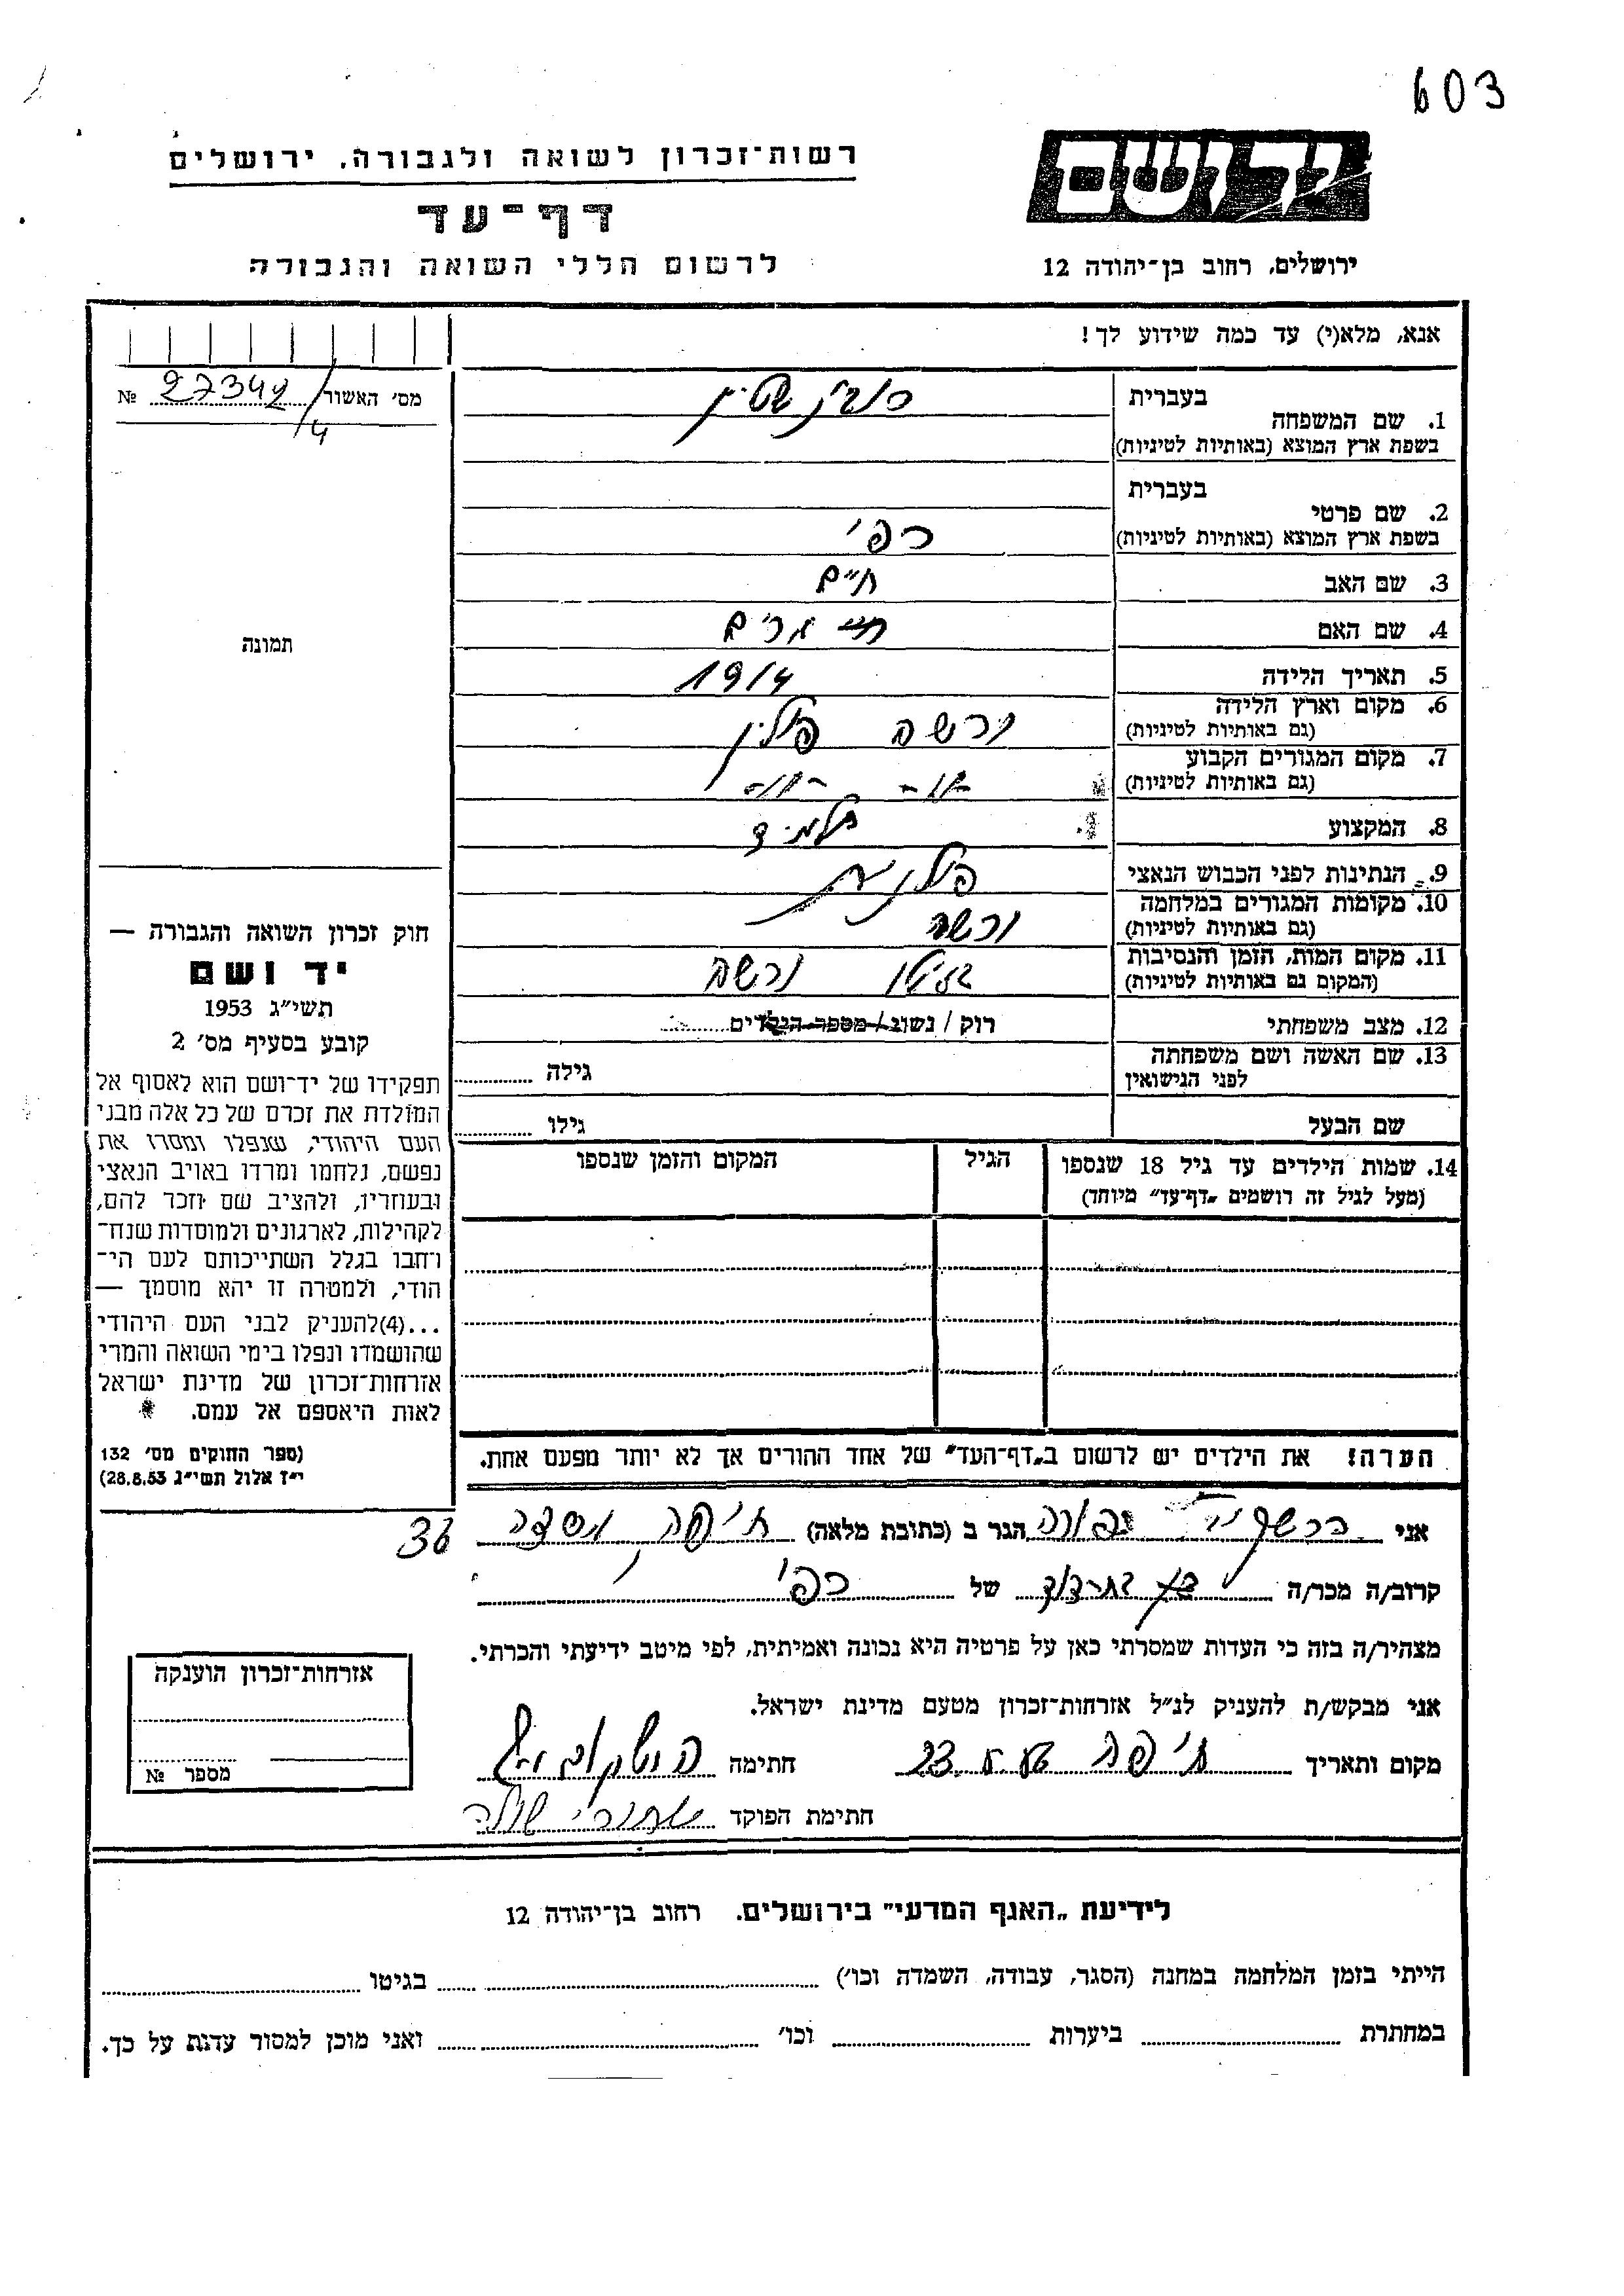 603
יד ושם
רשות־זכרון לשואה ולגבורה, ירושלים
דף־עד
לרשום חללי השואה והגבורה
ירושלים, רחוב בן־יהודה 12
אנא, מלא(י) עד כמה שידוע לך!
מס׳ האשור 27342/4 №
תמונה
1. שם המשפחה בעברית רובינשטיין
בשפת ארץ המוצא (באותיות לטיניות)
2. שם פרטי בעברית
בשפת ארץ המוצא (באותיות לטיניות) רפי
3. שם האב חיים
4. שם האם מרים
5. תאריך הלידה 1914
6. מקום וארץ הלידה (גם באותיות לטיניות) ורשה פולין
7. מקום המגורים הקבוע (גם באותיות לטיניות) -"- -"-
8. המקצוע תלמיד
9. הנתינות לפני הכבוש הנאצי פולנית
10. מקומות המגורים במלחמה (גם באותיות לטיניות) ורשה
11. מקום המות, הזמן והנסיבות (המקום גם באותיות לטיניות) בגיטו ורשה
12. מצב משפחתי רוק / נשוי / מספר הילדים
13. שם האשה ושם משפחתה לפני הנישואין גילה
שם הבעל גילו
14. שמות הילדים עד גיל 18 שנספו
(מעל לגיל זה רושמים „דף־עד״ מיוחד)
הגיל
המקום והזמן שנספו
חוק זכרון השואה והגבורה —
יד ושם
תשי״ג 1953
קובע בסעיף מס׳ 2
תפקידו של יד־ושם הוא לאסוף אל
המולדת את זכרם של כל אלה מבני
העם היהודי, שנפלו ומסרו את
נפשם, נלחמו ומרדו באויב הנאצי
ובעוזריו, ולהציב שם וזכר להם,
לקהילות, לארגונים ולמוסדות שנח־
רבו בגלל השתייכותם לעם הי־
הודי, ולמטרה זו יהא מוסמך —
...(4)להעניק לבני העם היהודי
שהושמדו ונפלו בימי השואה והמרי
אזרחות־זכרון של מדינת ישראל
לאות היאספם אל עמם.
(ספר החוקים מס׳ 132
י״ז אלול תשי״ג 28.8.53)
הערה! את הילדים יש לרשום ב„דף־העד״ של אחד ההורים אך לא יותר מפעם אחת.
אני הגר ב (כתובת מלאה) חיפה, 36
קרוב/ה מכר/ה של רפי
מצהיר/ה בזה כי העדות שמסרתי כאן על פרטיה היא נכונה ואמיתית, לפי מיטב ידיעתי והכרתי.
אני מבקש/ת להעניק לנ״ל אזרחות־זכרון מטעם מדינת ישראל.
מקום ותאריך חיפה 23. חתימה
חתימת הפוקד
אזרחות־זכרון הוענקה
מספר №
לידיעת „האגף המדעי״ בירושלים, רחוב בן־יהודה 12
הייתי בזמן המלחמה במחנה (הסגר, עבודה, השמדה וכו׳) בגיטו
במחתרת ביערות וכו׳ ואני מוכן למסור עדות על כך.